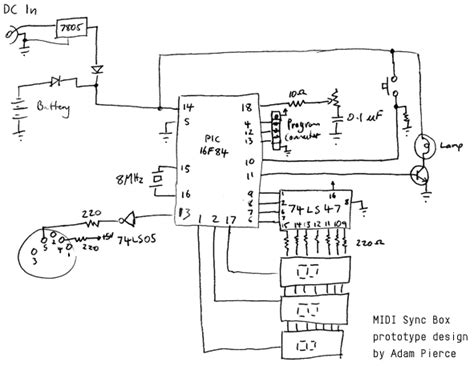 DC In
7805
Battery
14
5
18
4
12
13
10Ω
Program
Connector
0.1 µF
PIC
16F84
Lamp
8MHz
15
16
10
11
13
1 2 17
9
8
7
6
1
2
6
7
16
8
74LS47
13 12 11 10 9
220Ω
220
74LS05
+5V
220
5
4
1
3
MIDI Sync Box
prototype design
by Adam Pierce